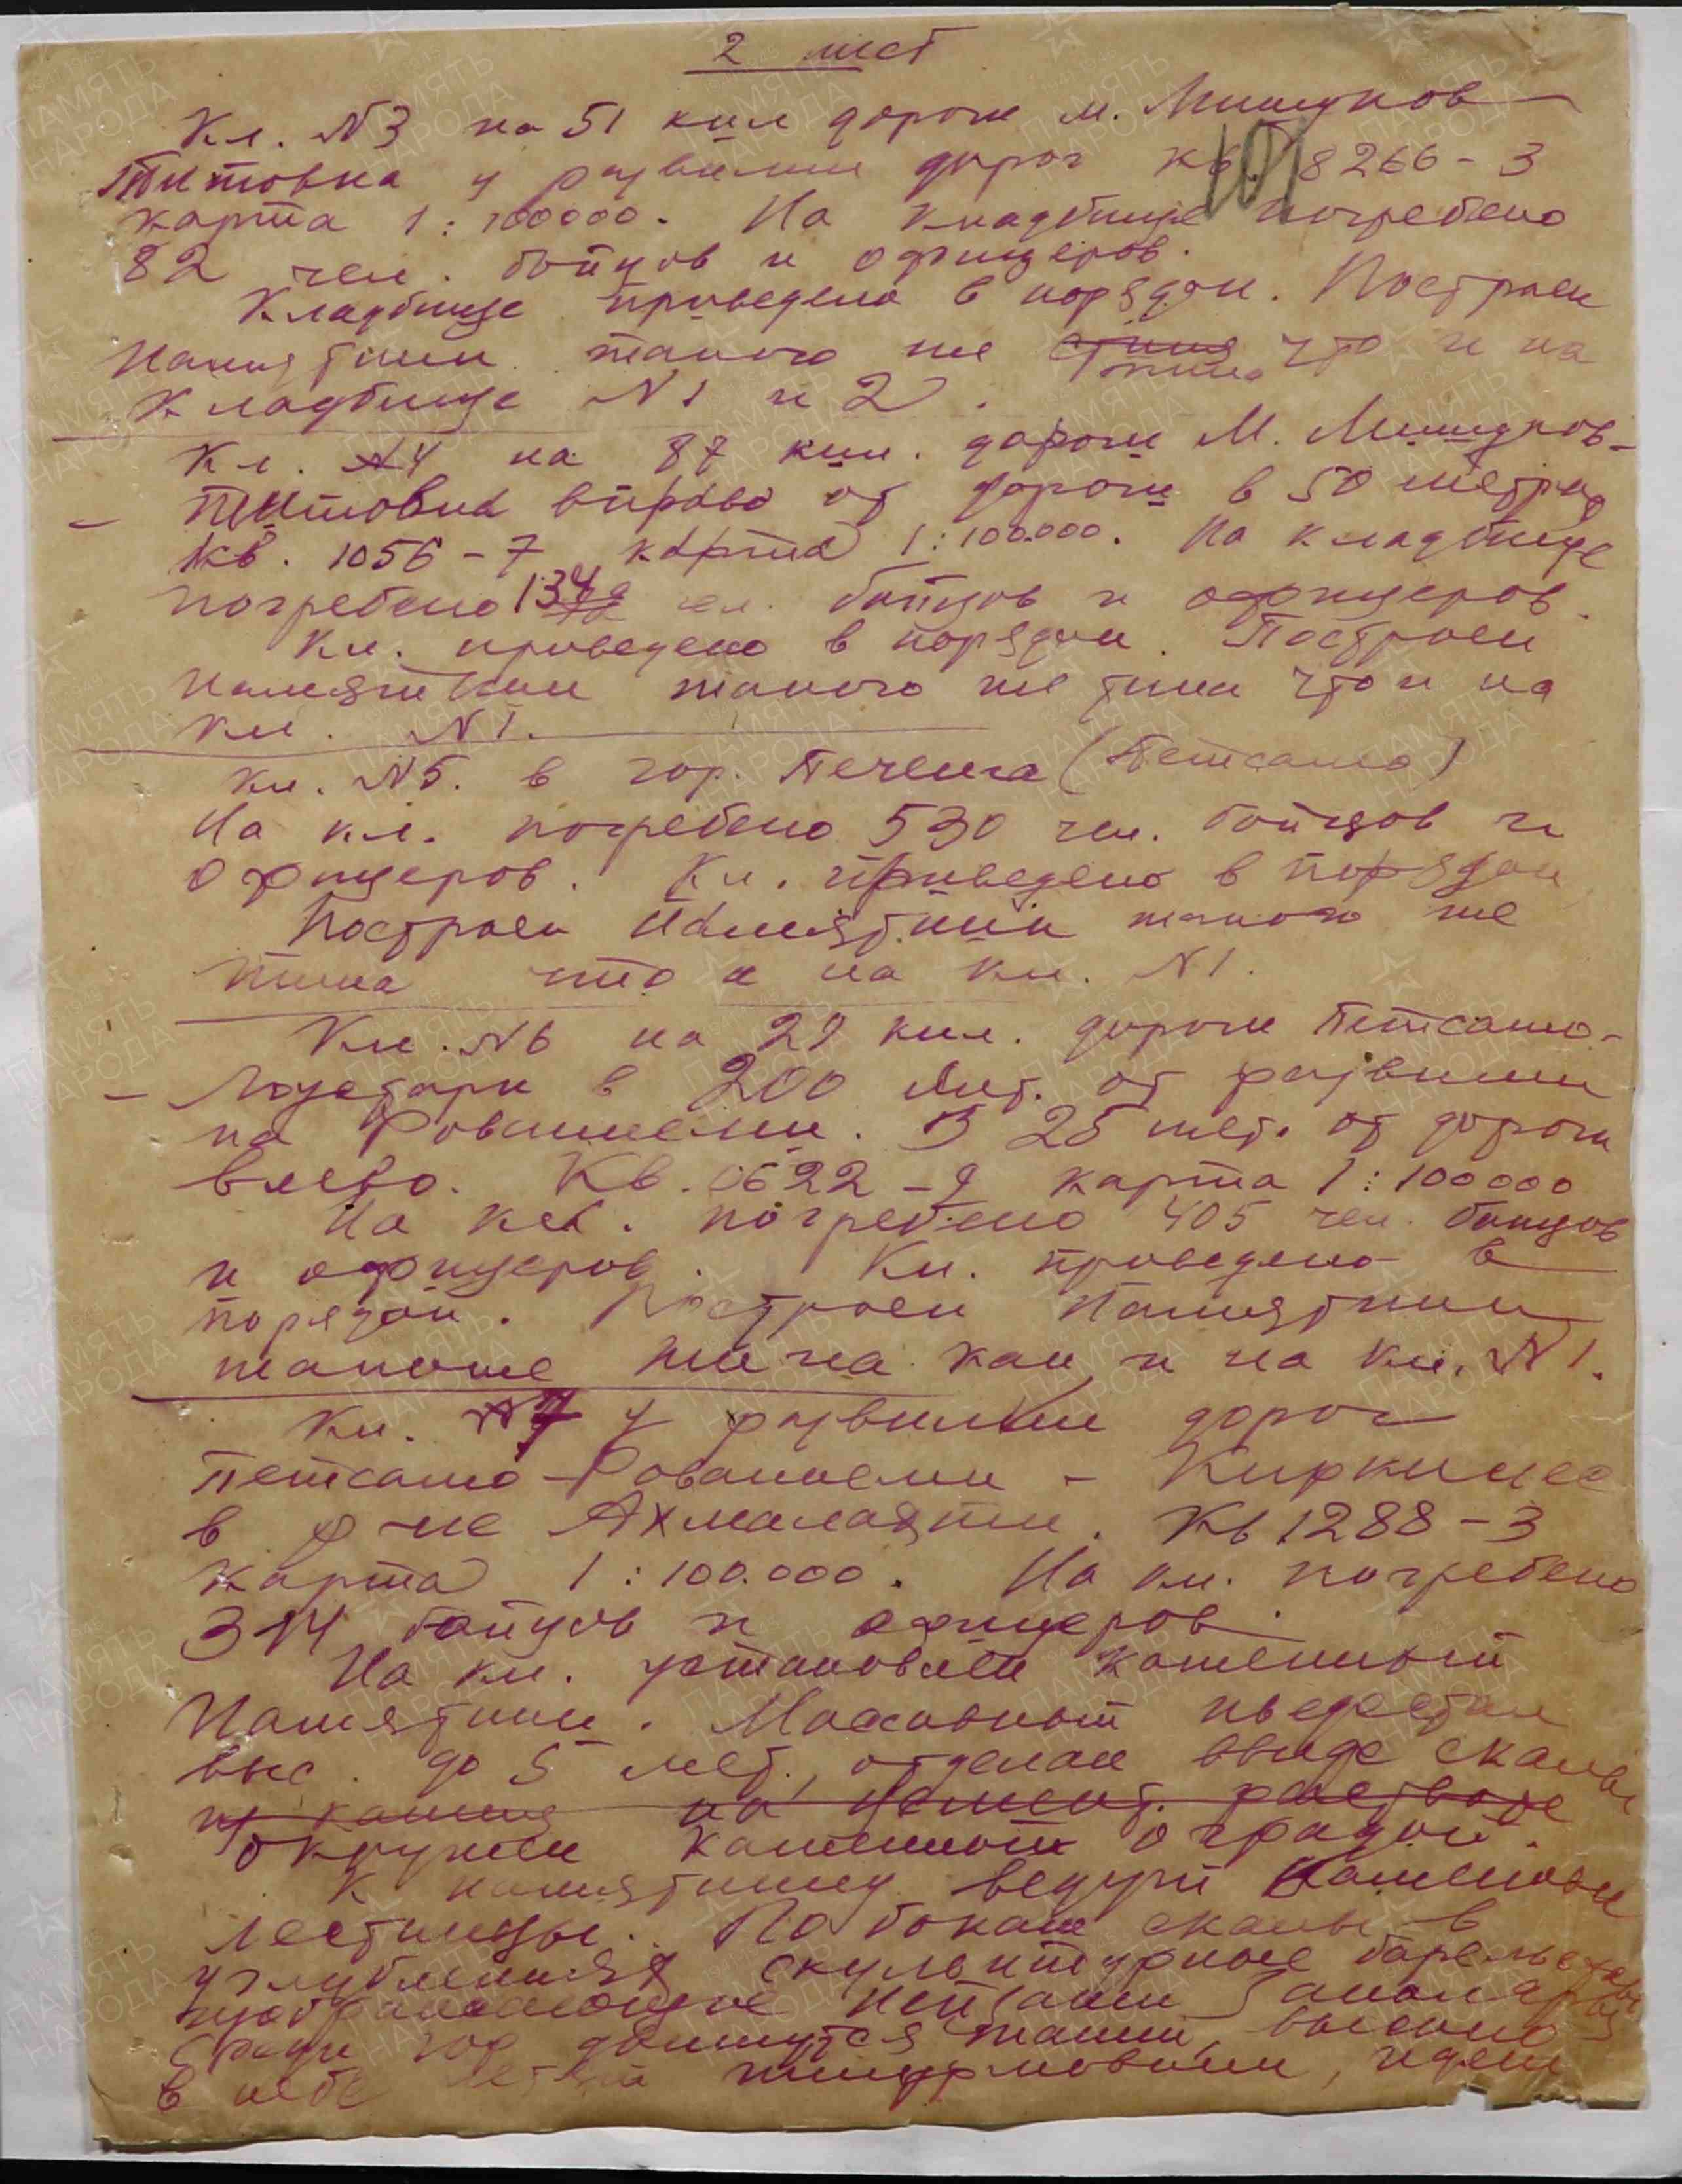 2 лист
101
Кл. N3 на 51 кил дороги м. Мишуков
Титовка у развилки дорог кв. 8266-3
карта 1:100000. На кладбище погребено
82 чел. бойцов и офицеров.
Кладбище приведено в порядок. Построен
памятник такого же типа что и на
кладбище N1 и 2.
Кл. N4 на 87 кил. дороги М. Мишуков-
- Титовка вправо от дороги в 50 метрах
Кв. 1056-7 карта 1:100.000. На кладбище
погребено чел. бойцов и офицеров.
Кл. приведено в порядок. Построен
памятник такого же типа что и на
кл. N1.
Кл. N5. в гор. Печенга (Петсамо)
На кл. погребено 530 чел. бойцов и
офицеров. Кл. приведено в порядок
Построен памятник такого же
типа что и на кл. N1.
Кл. N6 на 29 кил. дороги Петсамо-
- Луостари в 200 мет. от развилки
на Рованиеми. В 25 мет. от дороги
влево. Кв. 0622-9 карта 1:100000
На кл. погребено 405 чел. бойцов
и офицеров. Кл. приведено в
порядок. Построен памятник
такого же типа как и на кл. N1.
Кл. N7 у развилки дорог
Петсамо-Рованиеми - Киркинес
в р-не Ахмалахти. Кв 1288-3
карта 1:100.000. На кл. погребено
314 бойцов и офицеров.
На кл. установлен каменный
памятник. Массивный пьедестал
выс. до 5 мет., отделан ввиде скалы
из камня на цемент. растворе
окружен каменной оградой.
К памятнику ведут каменные
лестницы. По бокам скалы в
углублениях скульптурные барельефы
изображающие пейзажи Заполярья
Среди гор движутся танки, высоко
в небе летят штурмовики, идет